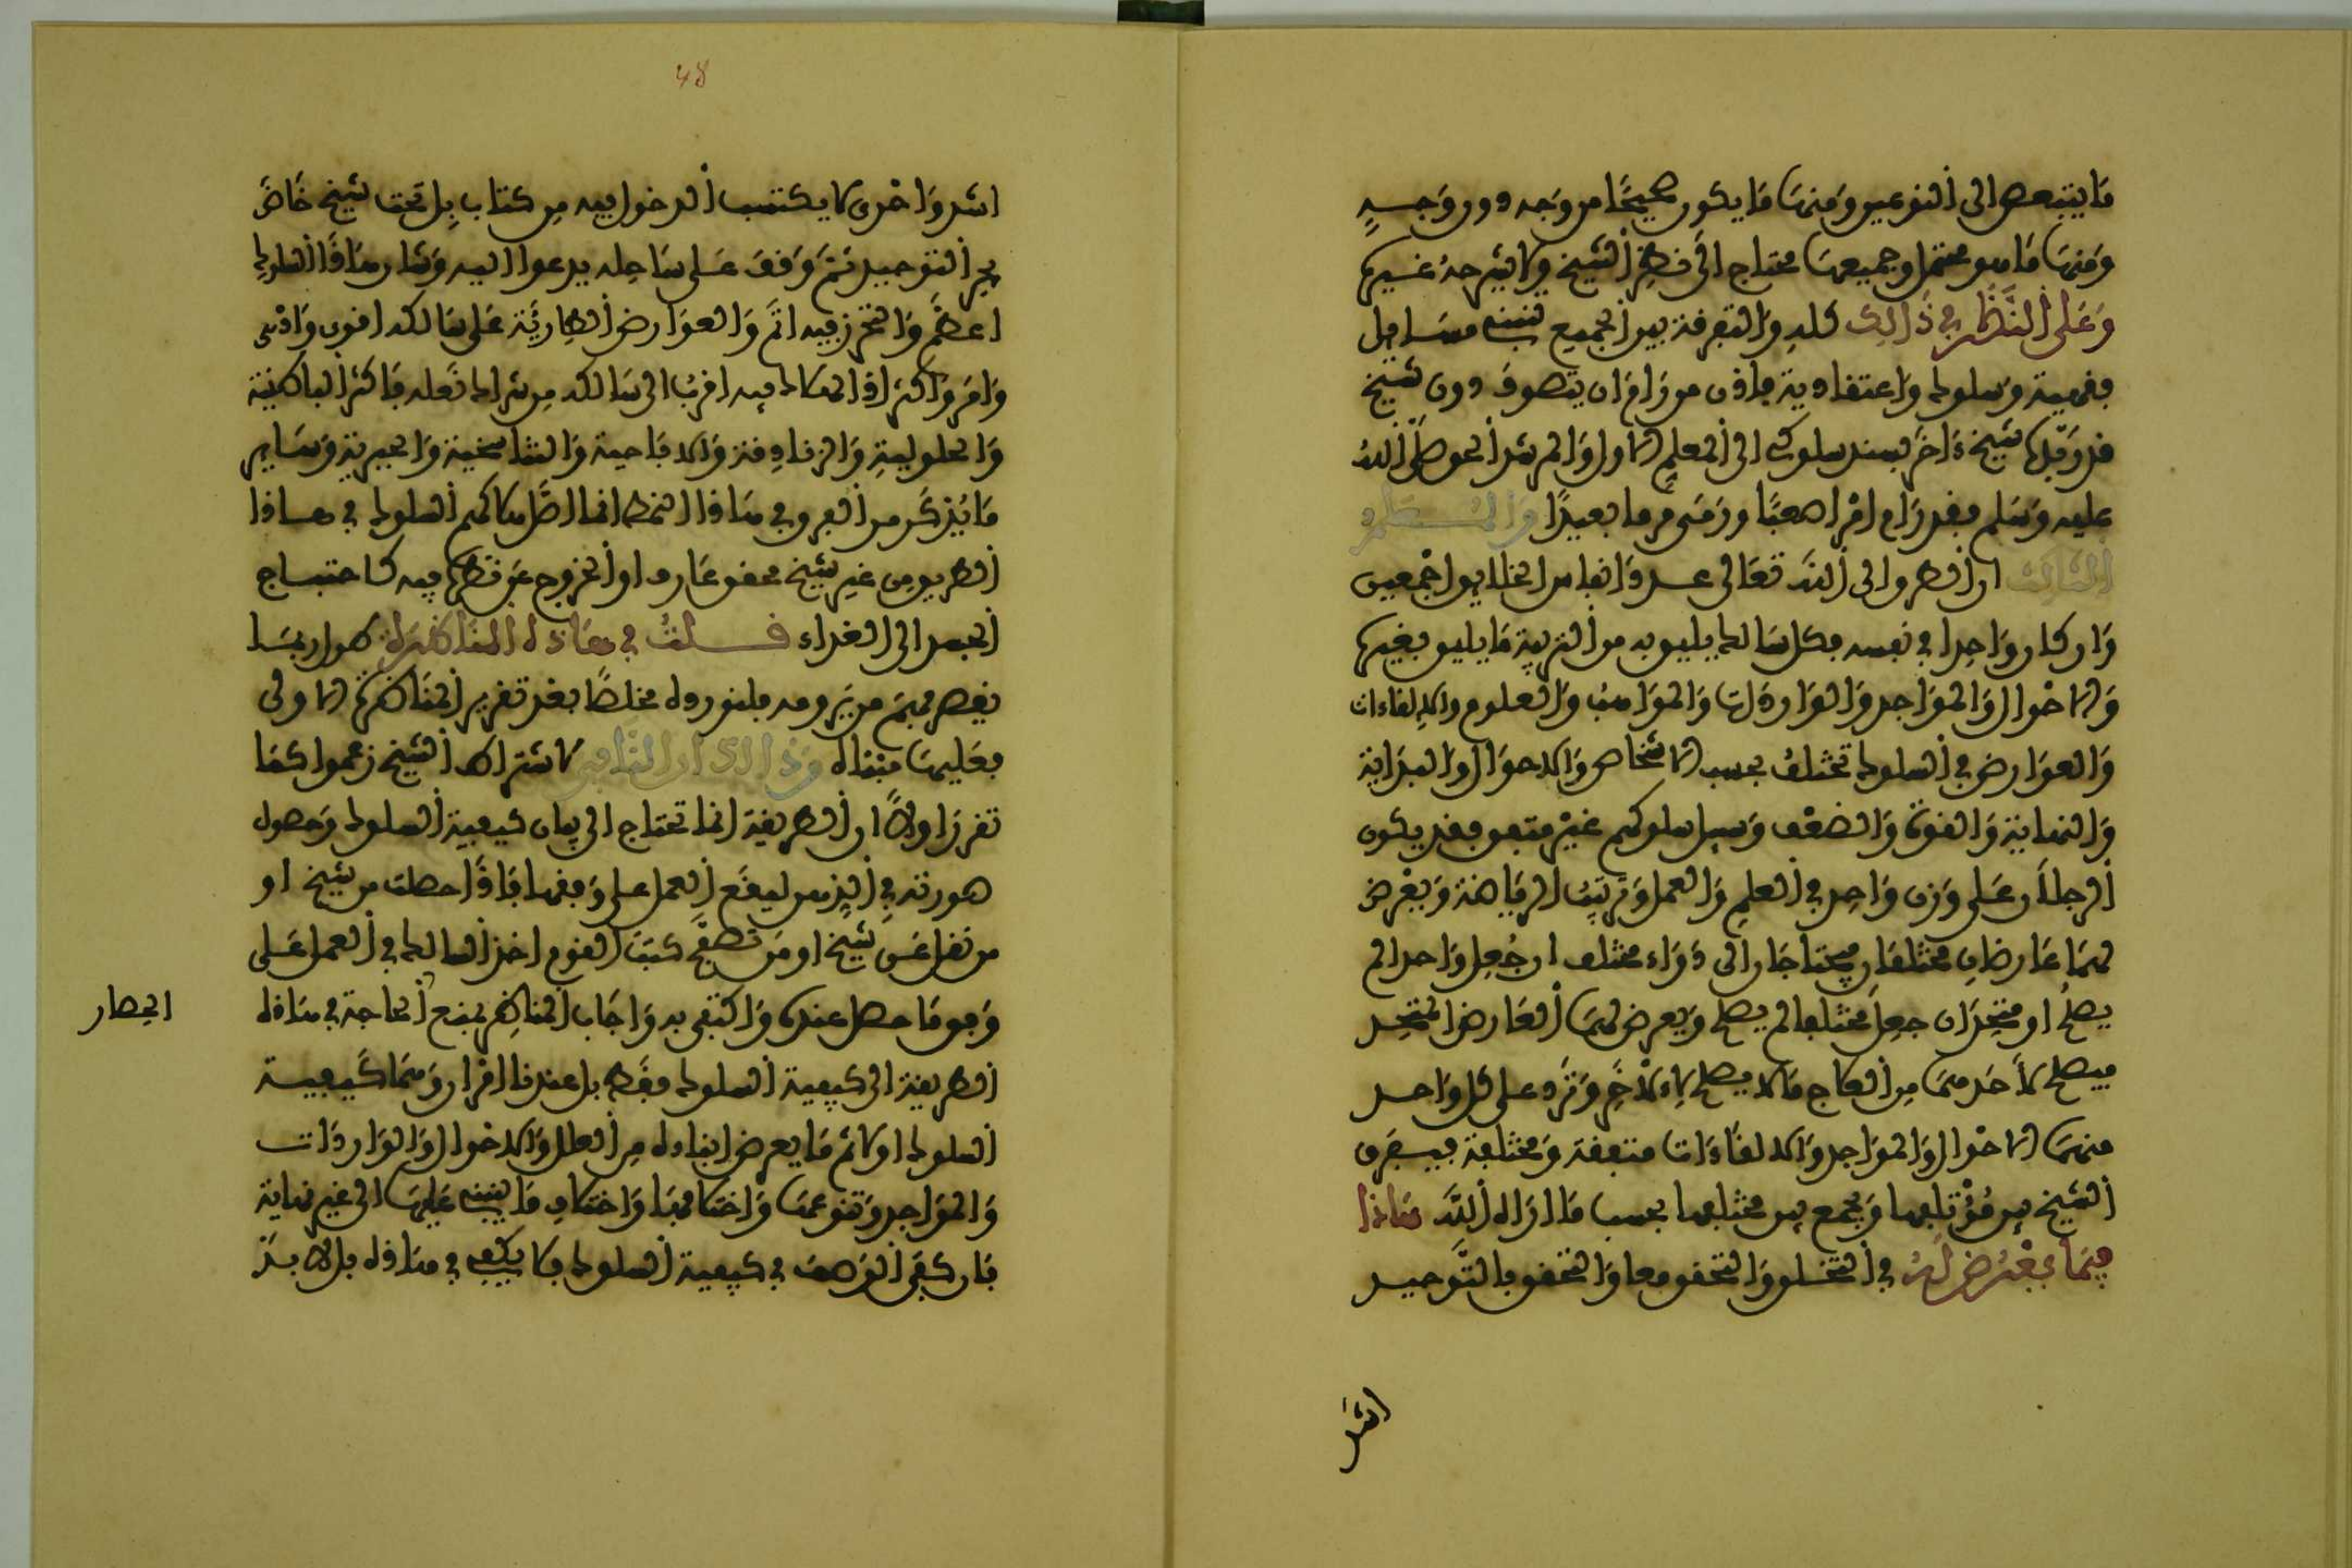 ما يتبعض الى النوعين ومنها ما يكون صحيحا من وجه دون وجه
ومنها ما هو محتمل وجميعها محتاج الى نظر الشيخ ولا يشرحه غيره
وعلى النظر في ذالك كله والتفرقة بين الجميع تنبني مسايل
فقهية وسلوك واعتقادية فاذن من رام ان يتصوف دون شيخ
قد رقبه شيخ ءاخر بسند سلوكي الى المعلم الاول والمرشد الحق صلى الله
عليه وسلم فقد رام امرا صعبا ورمى مرما بعيدا والمسطر
الثالث ان الطرق الى الله تعالى عدد انفاس الخلايق اجمعين
وان كان واحدا في نفسه فكل سالك يليق به من التربية ما يليق بغيره
والاحوال والمواجد والواردات والمواهب والعلوم والالقاءات
والعوارض في السلوك تختلف بحسب الاشخاص والاحوال والبداية
والنهاية والقوة والضعف وسبل سلوكهم غير متفق فقد يكون
الرجلان على وزن واحد في العلم والعمل وترتيب الرياضة ويعرض
لهما عارضان مختلفان يحتاجان الى دواء مختلف ان جعل واحدا لم
يصلح او متحدان جعل مختلفا لم يصلح ويعرض لهما العارض المتحد
فيصلح لاحدهما من العلاج ما لا يصلح للاخر وترد على كل واحد
منهما الاحوال والمواجد والالقاءات متفقة ومختلفة فيفرق
الشيخ بين مؤتلفها ويجمع بين مختلفها بحسب ما اراه الله هاذا
فيما يعرض له في التخلق والتحقق معا والتحقق بالتوحيد
اشد
48
اشد واحرى لا يكتسب الدخول فيه من كتاب بل تحت شيخ خاض
بحر التوحيد ثم وقف على ساحله يدعوا اليه وشان هاذا السلوك
اعظم والتحرز فيه اتم والعوارض الطارئة على سالكه اقوى وادهى
وامر واكثر اذ الهلاك فيه اقرب الى سالكه من شراك نعله فاكثر الباطنية
والحلولية والزنادقة والاباحية والتناسخية والجبرية وساير
ما يذكر من الفرق في هاذا النمط انما اصل هلاكهم السلوك في هاذا
الطريق من غير شيخ محقق عارف او الخروج عن نظره فيه كاحتياج
الجسد الى الغذاء قلت في هاذه المناظرة طول ربما
يعسر فهم من يرومه فلنورده مخلصا بعد تقرير المناظرة الاولى
فعليها مبناه وذالك ان النافي لاشتراط الشيخ زعموا كما
تقرر اولا ان الطريقة انما تحتاج الى بيان كيفية السلوك وحصول
صورته في الذهن ليقع العمل على وفقها فاذا حصلت من شيخ او
من نقل عن شيخ او من تصفح كتب القوم اخذ السالك في العمل على
وفق ما حصل عنده واكتفى به واجاب المناظر بمنع انحصار الحاجة في هاذه
الطريقة الى كيفية السلوك فقط بل عندنا امران وهما كيفية
السلوك اولا ثم ما يعرض اثناءه من العلل والاحوال والواردات
والمواجد وتنوعها واختلافها واختلاف ما ينبني عليها الى غير نهاية
فان كفى الوصف في كيفية السلوك فلا يكفي في هاذه بل لا بد
الحصار